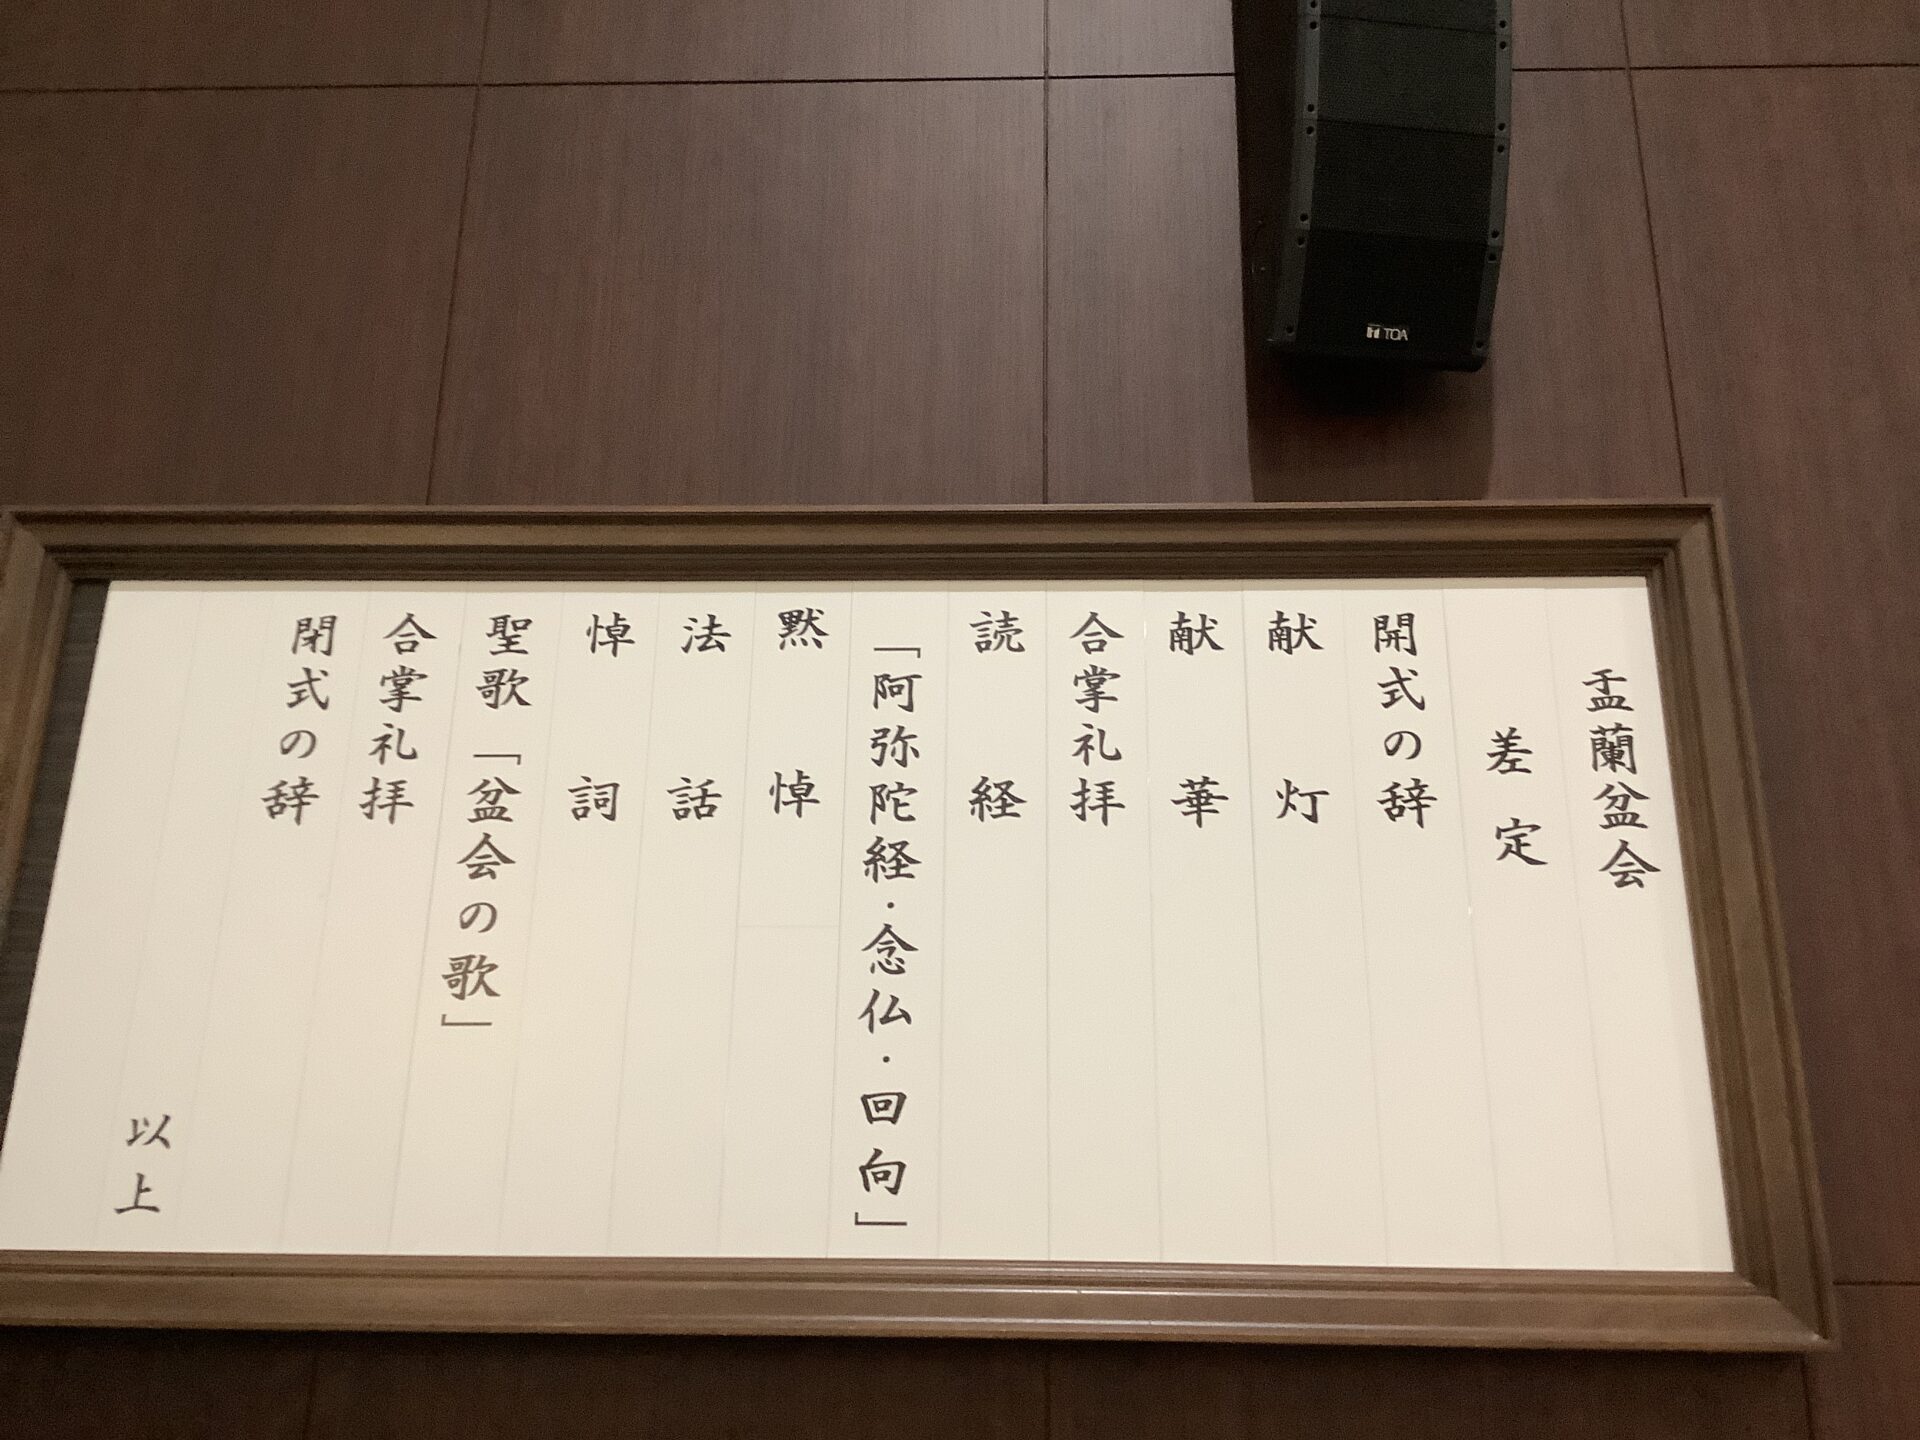 盂蘭盆会
差定
開式の辞
献灯
献華
合掌礼拝
読経
「阿弥陀経・念仏・回向」
黙悼
法話
悼詞
聖歌「盆会の歌」
合掌礼拝
閉式の辞
以上
TOA